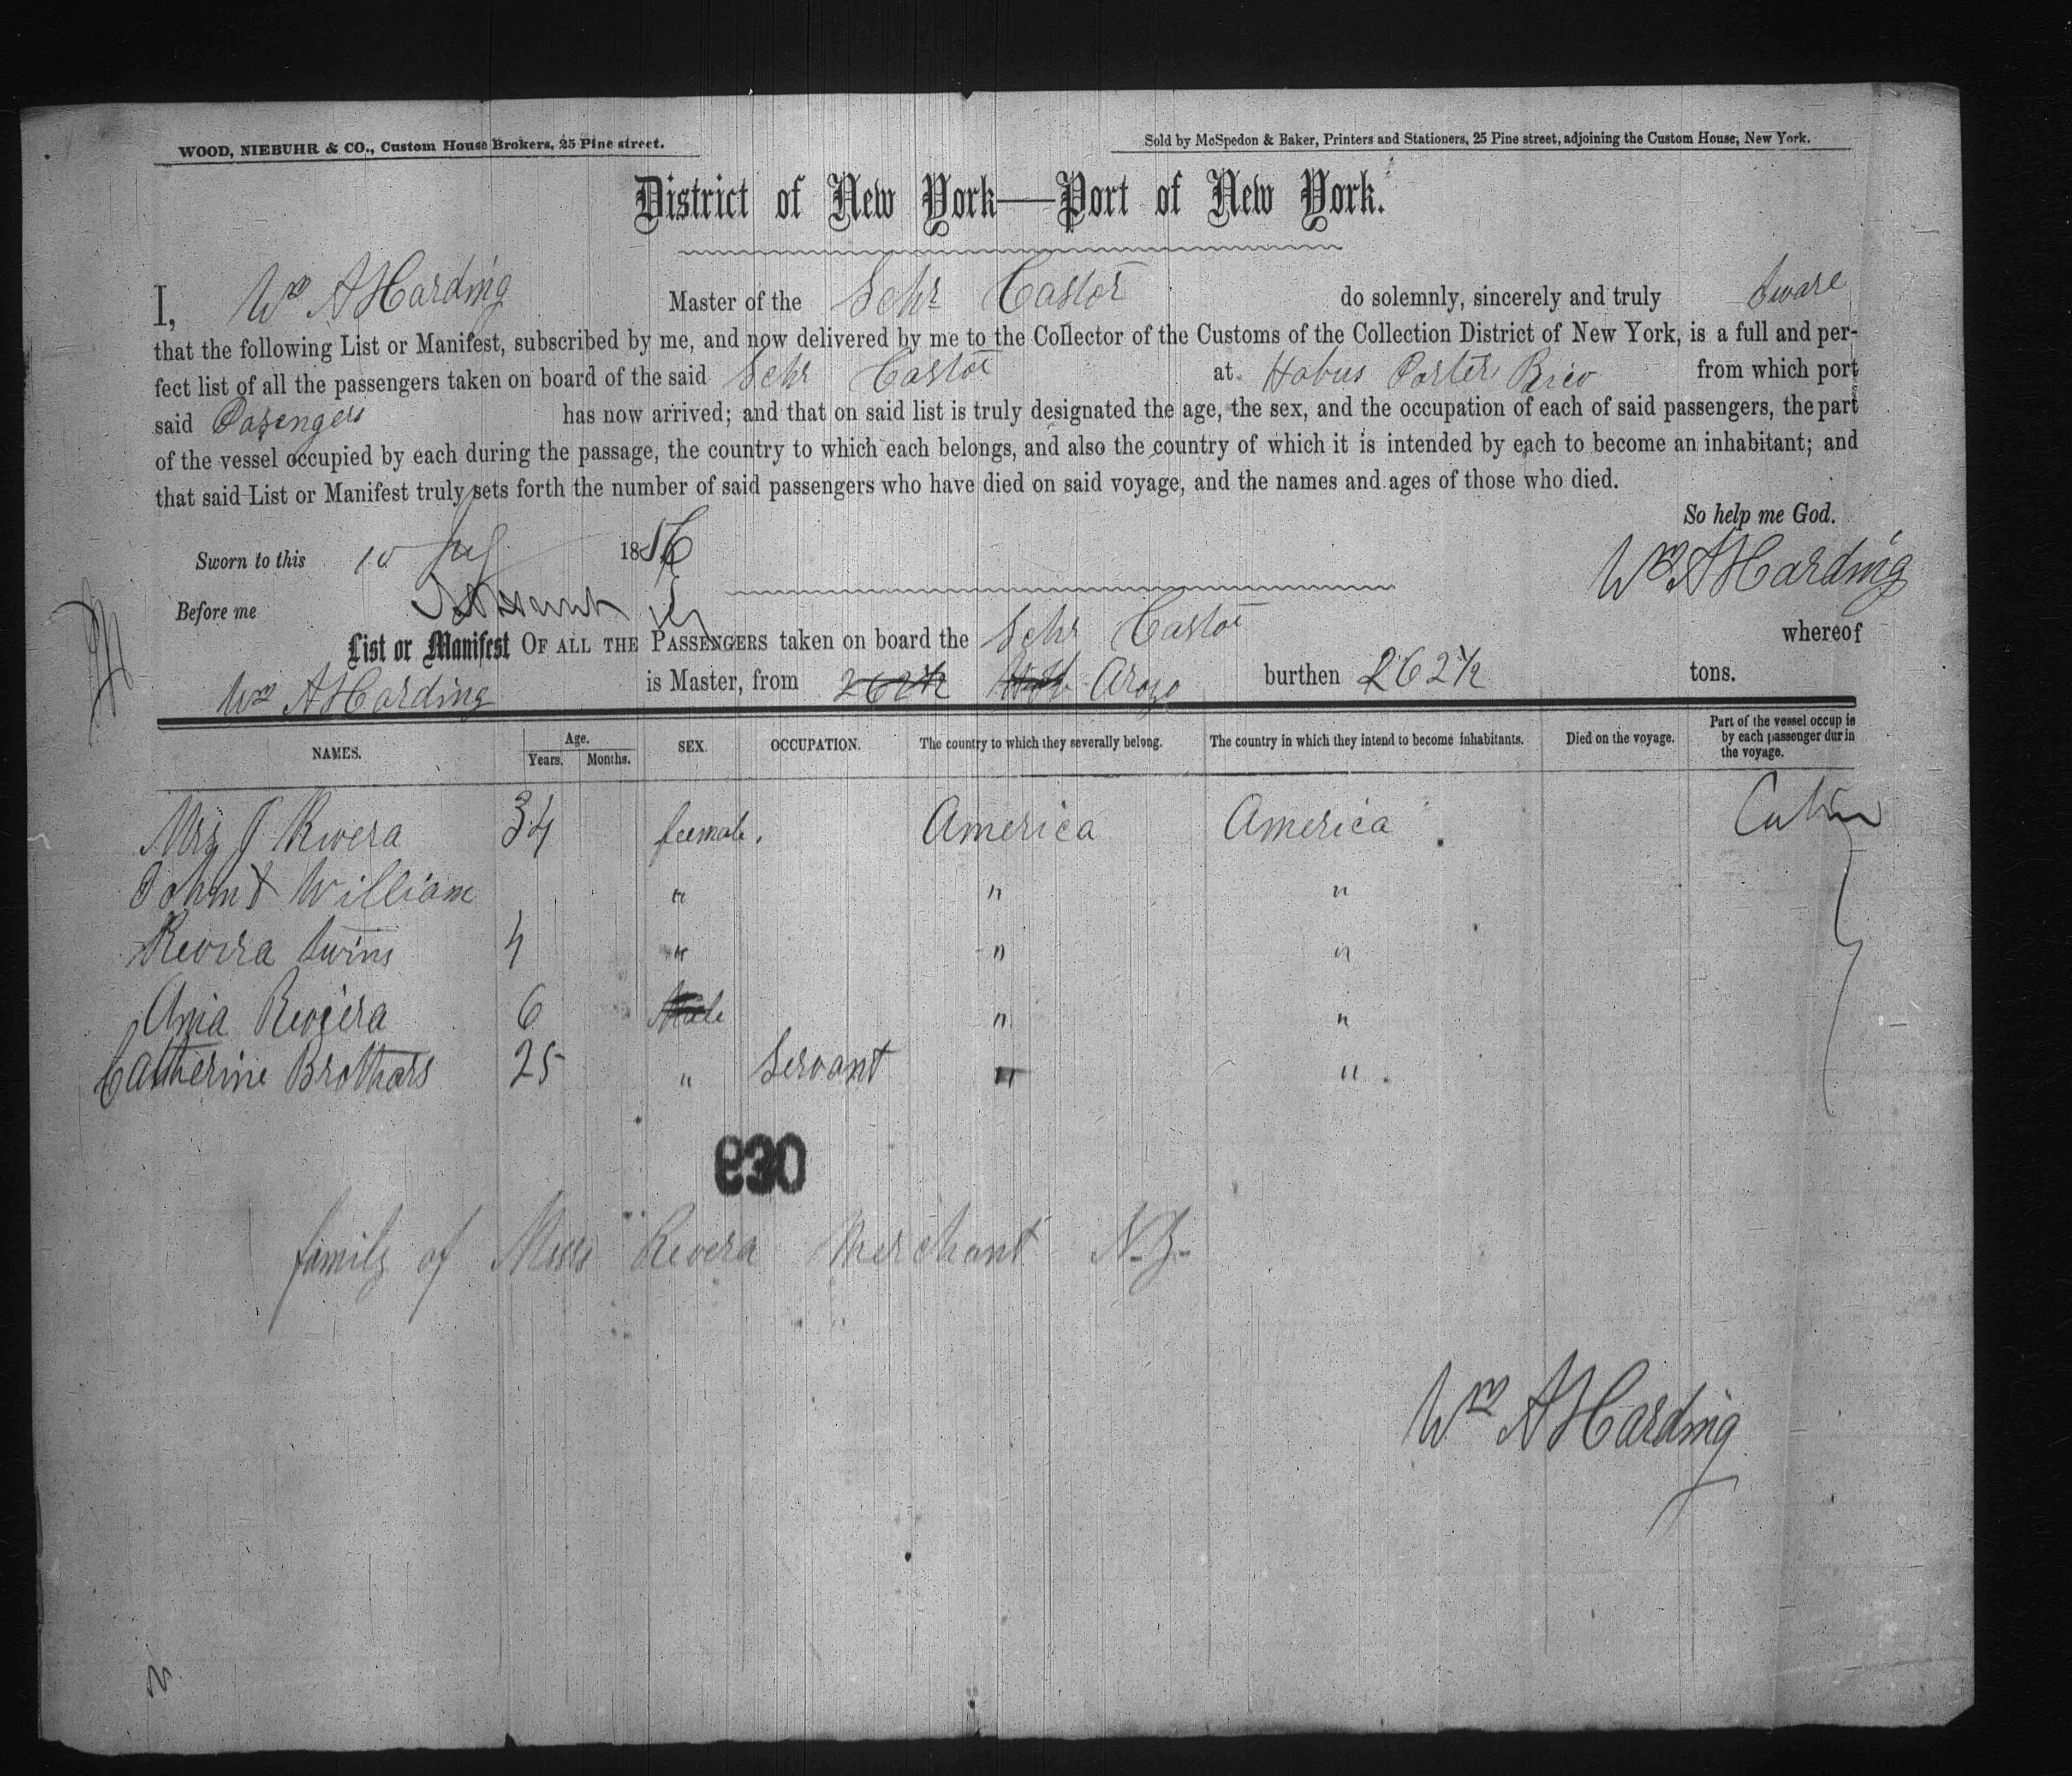 WOOD, NIEBUHR & CO., Custom House Brokers, 25 Pine street.
Sold by McSpedon & Baker, Printers and Stationers, 25 Pine street, adjoining the Custom House, New York.
District of New York—Port of New York.
I, Wm A Harding Master of the Schr Castor do solemnly, sincerely and truly Sware
that the following List or Manifest, subscribed by me, and now delivered by me to the Collector of the Customs of the Collection District of New York, is a full and per-
fect list of all the passengers taken on board of the said Schr Castor at Porter Rico from which port
said Pasengers has now arrived; and that on said list is truly designated the age, the sex, and the occupation of each of said passengers, the part
of the vessel occupied by each during the passage, the country to which each belongs, and also the country of which it is intended by each to become an inhabitant; and
that said List or Manifest truly sets forth the number of said passengers who have died on said voyage, and the names and ages of those who died.
So help me God.
Sworn to this 10 1856
Wm A Harding
Before me
List or Manifest OF ALL THE PASSENGERS taken on board the Schr Castor whereof
Wm A Harding is Master, from 262½ Aroyo burthen 262½ tons.
NAMES. Age. Years. Months. SEX. OCCUPATION. The country to which they severally belong. The country in which they intend to become inhabitants. Died on the voyage. Part of the vessel occup ie by each passenger dur in the voyage.
Mrs J Rivera 34 feemale. America America Cabin
John & William " " "
Revira twins 4 " " "
Ana Reviera 6 " "
Catherine Brothars 25 " Servant " "
630
family of Revera Merchant N.Y.
Wm A Harding